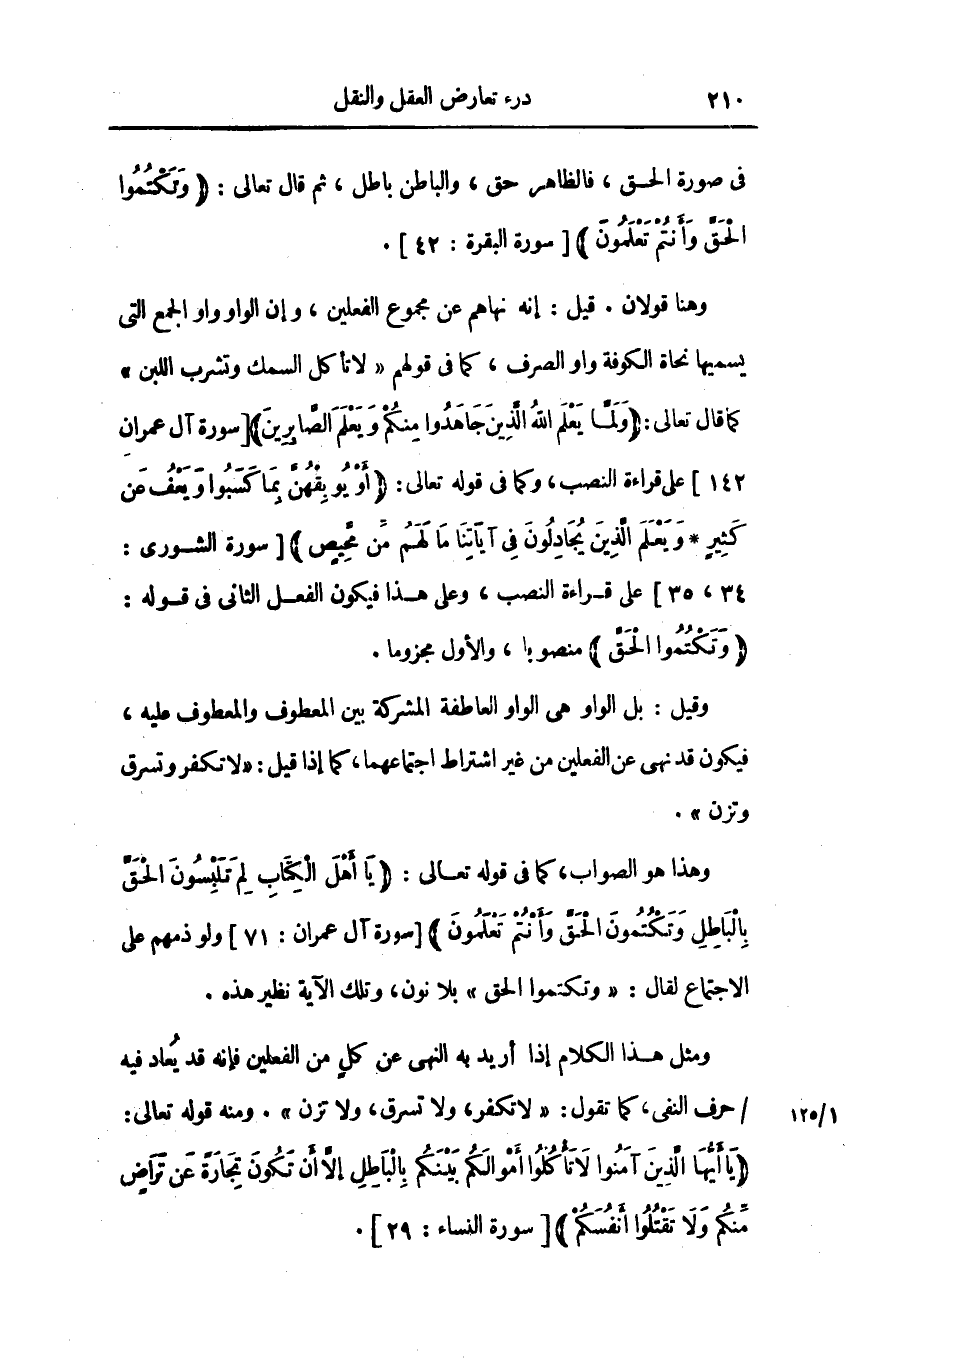 ٢١٠ درء تعارض العقل والنقل
فى صورة الحـق ، فالظاهر حق ، والباطن باطل ، ثم قال تعالى : ﴿ وَتَكْتُمُوا
الْحَقَّ وَأَنتُمْ تَعْلَمُونَ ﴾ [ سورة البقرة : ٤٢ ] .
وهنا قولان . قيل : إنه نهاهم عن مجموع الفعلين ، وإن الواو واو الجمع التى
يسميها نحاة الكوفة واو الصرف ، كما فى قولهم « لا تأكل السمك وتشرب اللبن »
كما قال تعالى : ﴿ وَلَمَّا يَعْلَمِ اللهُ الَّذِينَ جَاهَدُوا مِنكُمْ وَيَعْلَمَ الصَّابِرِينَ ﴾ [ سورة آل عمران
١٤٢ ] على قراءة النصب ، وكما فى قوله تعالى : ﴿ أَوْ يُوبِقْهُنَّ بِمَا كَسَبُوا وَيَعْفُ عَن
كَثِيرٍ * وَيَعْلَمَ الَّذِينَ يُجَادِلُونَ فِى آيَاتِنَا مَا لَهُم مِّن مَّحِيصٍ ﴾ [ سورة الشـورى :
٣٤ ، ٣٥ ] على قـراءة النصب ، وعلى هـذا فيكون الفعـل الثانى فى قـوله :
﴿ وَتَكْتُمُوا الْحَقَّ ﴾ منصوبا ، والأول مجزوما .
وقيل : بل الواو هى الواو العاطفة المشركة بين المعطوف والمعطوف عليه ،
فيكون قد نهى عن الفعلين من غير اشتراط اجتماعهما ، كما إذا قيل : « لا تكفر وتسرق
وتزن » .
وهذا هو الصواب ، كما فى قوله تعـالى : ﴿ يَا أَهْلَ الْكِتَابِ لِمَ تَلْبِسُونَ الْحَقَّ
بِالْبَاطِلِ وَتَكْتُمُونَ الْحَقَّ وَأَنْتُمْ تَعْلَمُونَ ﴾ [ سورة آل عمران : ٧١ ] ولو ذمهم على
الاجتماع لقال : « وتكتموا الحق » بلا نون ، وتلك الآية نظير هذه .
ومثل هـذا الكلام إذا أريد به النهى عن كلٍ من الفعلين فإنه قد يُعاد فيه
/ حرف النفى ، كما تقول : « لا تكفر ، ولا تسرق ، ولا تزن » . ومنه قوله تعالى : ١٢٥/١
﴿ يَا أَيُّهَا الَّذِينَ آمَنُوا لَا تَأْكُلُوا أَمْوَالَكُم بَيْنَكُم بِالْبَاطِلِ إِلَّا أَن تَكُونَ تِجَارَةً عَن تَرَاضٍ
مِّنكُمْ وَلَا تَقْتُلُوا أَنفُسَكُمْ ﴾ [ سورة النساء : ٢٩ ] .